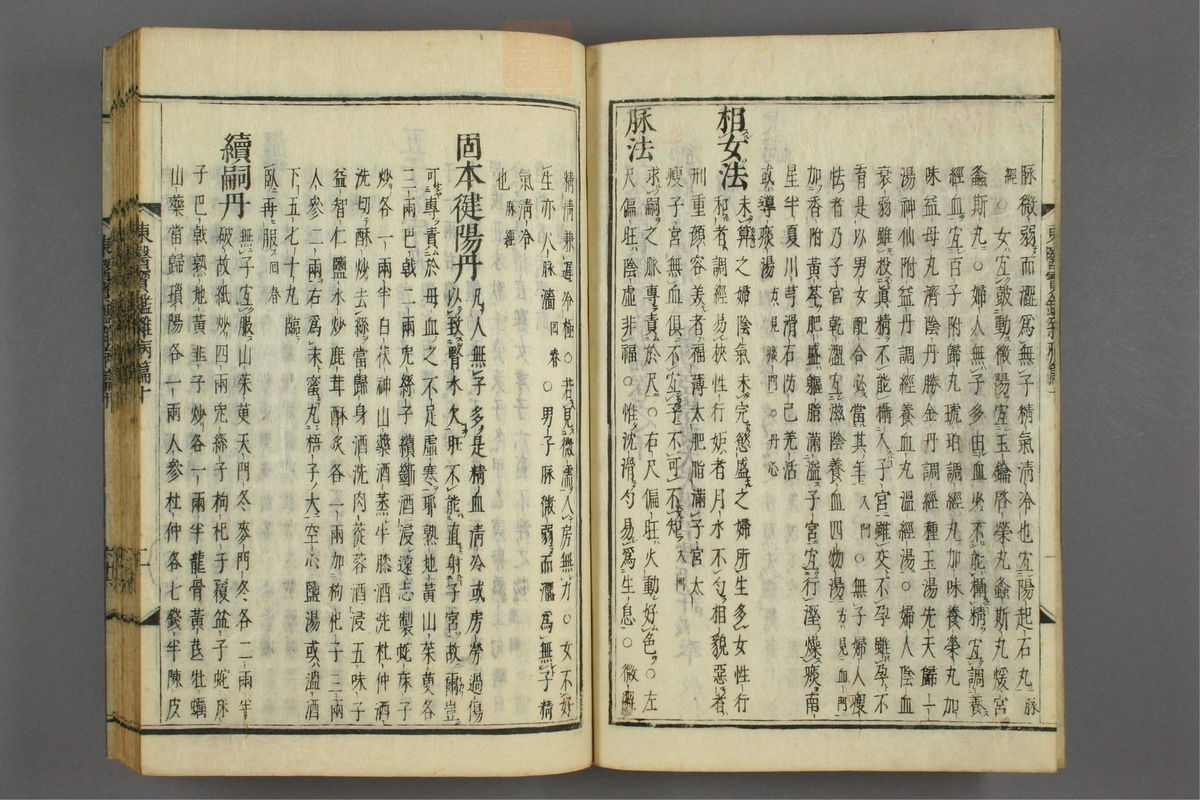 脉微弱而濇爲無子精氣淸冷也宜陽起石丸脉
經○女宜鼓動微陽宜玉鑰啓榮丸螽斯丸煖宮
螽斯丸○婦人無子多由血少不能攝精宜調養
經血宜百子附歸丸琥珀調經丸加味養榮丸加
味益母丸濟陰丹勝金丹調經種玉湯先天歸一
湯神仙附益丹調經養血丸溫經湯○婦人陰血
衰弱雖投眞精不能攝入子宮雖交不孕雖孕不
育是以男女配合必當其年入門○無子婦人瘦
怯者乃子宮乾澀宜滋陰養血四物湯方見血門
加香附黃芩肥盛軀脂滿溢子宮宜行濕燥痰南
星半夏川芎滑石防己羌活
或導痰湯方見痰門○丹心
相女法
未筭之婦陰氣未完慾盛之婦所生多女性行
和者調經易挾性行妬者月水不勻相貌惡者
刑重顔容美者福薄太肥脂滿子宮太
瘦子宮無血俱不宜子不可不知入門
脉法
求嗣之脉專責於尺○右尺偏旺火動好色○左
尺偏旺陰虛非福○惟沈滑勻易爲生息○微濇
精淸兼遲冷極○若見微濡入房無力○女不好
生亦人脉濇回春○男子脉微弱而濇爲無子精
氣淸冷
也脉經
固本健陽丹
凡人無子多是精血淸冷或房勞過傷
以致腎水欠旺不能直射子宮故爾豈
可專責於母血之不足虛寒耶熟地黃山茱萸各
三兩巴戟二兩兎絲子續斷酒浸遠志製蛇床子
炒各一兩半白茯神山藥酒蒸牛膝酒洗杜仲酒
洗切酥炒去絲當歸身酒洗肉蓯蓉酒浸五味子
益智仁鹽水炒鹿茸酥炙各一兩加枸杞子三兩
人參二兩右爲末蜜丸梧子大空心鹽湯或溫酒
下五七十丸臨
臥再服回春
續嗣丹
無子宜服山茱萸天門冬麥門冬各二兩半
破故紙炒四兩兎絲子枸杞子覆盆子蛇床
子巴戟熟地黃韭子炒各一兩半龍骨黃芪牡蠣
山藥當歸瑣陽各一兩人參杜仲各七錢半陳皮
東醫寶鑑雜病篇十
二